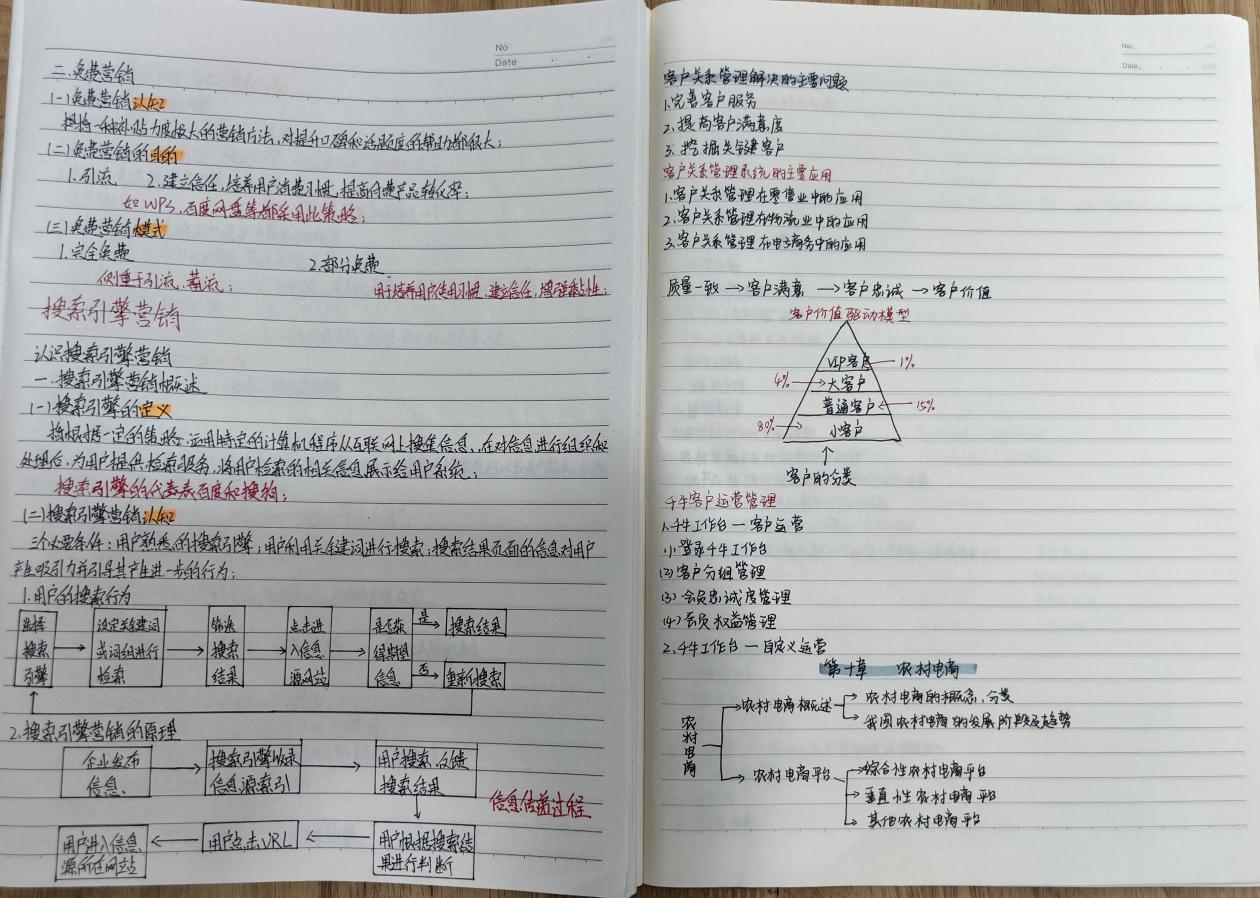 No
Date
二.免费营销
(一)免费营销认知
是指一种补贴力度较大的营销方法,对提升口碑和活跃度的帮助都很大;
(二)免费营销的目的
1.引流 2.建立信任,培养用户消费习惯,提高付费产品转化率;
如WPS,百度网盘等都采用此策略;
(三)免费营销模式
1.完全免费 2.部分免费
侧重于引流,蓄流; 用于培养用户使用习惯,建立信任,增强黏性;
搜索引擎营销
认识搜索引擎营销
一.搜索引擎营销概述
(一)搜索引擎的定义
指根据一定的策略.运用特定的计算机程序从互联网上搜集信息、在对信息进行组织和
处理后,为用户提供检索服务,将用户检索的相关信息展示给用户系统;
搜索引擎的代表百度和搜狗;
(二)搜索引擎营销认知
三个必要条件:用户熟悉的搜索引擎;用户利用关键词进行搜索;搜索结果页面的信息对用户
产生吸引力并引导其产生进一步的行为;
1.用户的搜索行为
选择搜索引擎
设定关键词或词组进行检索
筛选搜索结果
点击进入信息源网站
是否获得期望信息
是
搜索结果
否
重新搜索
2.搜索引擎营销的原理
企业发布信息、
搜索引擎收录信息源索引
用户搜索、反馈搜索结果
信息传递过程
用户根据搜索结果进行判断
用户点击URL
用户进入信息源所在网站
No.
Date.
客户关系管理解决的主要问题
1.完善客户服务
2.提高客户满意度
3.挖掘关键客户
客户关系管理系统的主要应用
1.客户关系管理在零售业中的应用
2.客户关系管理在物流业中的应用
3.客户关系管理在电子商务中的应用
质量一致→客户满意→客户忠诚→客户价值
客户价值驱动模型
VIP客户 1%
4% 大客户
普通客户 15%
80% 小客户
客户的分类
千牛客户运营管理
1.千牛工作台—客户运营
(1)登录千牛工作台
(2)客户分组管理
(3)会员忠诚度管理
(4)会员权益管理
2.千牛工作台—自定义运营
第十章 农村电商
农村电商
农村电商概述
农村电商的概念,分类
我国农村电商的发展阶段及趋势
农村电商平台
综合性农村电商平台
垂直性农村电商平台
其他农村电商平台